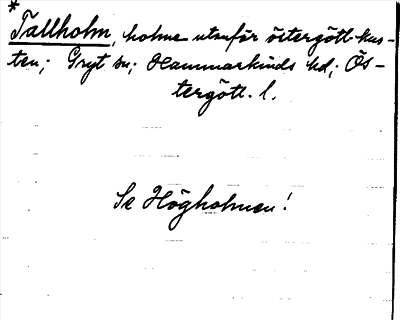 *
Tallholm, holme utanför östergött-kus-
ten; Gryt sn; Hammarkinds hd; Ös-
tergött. l.
Se Högholmen!